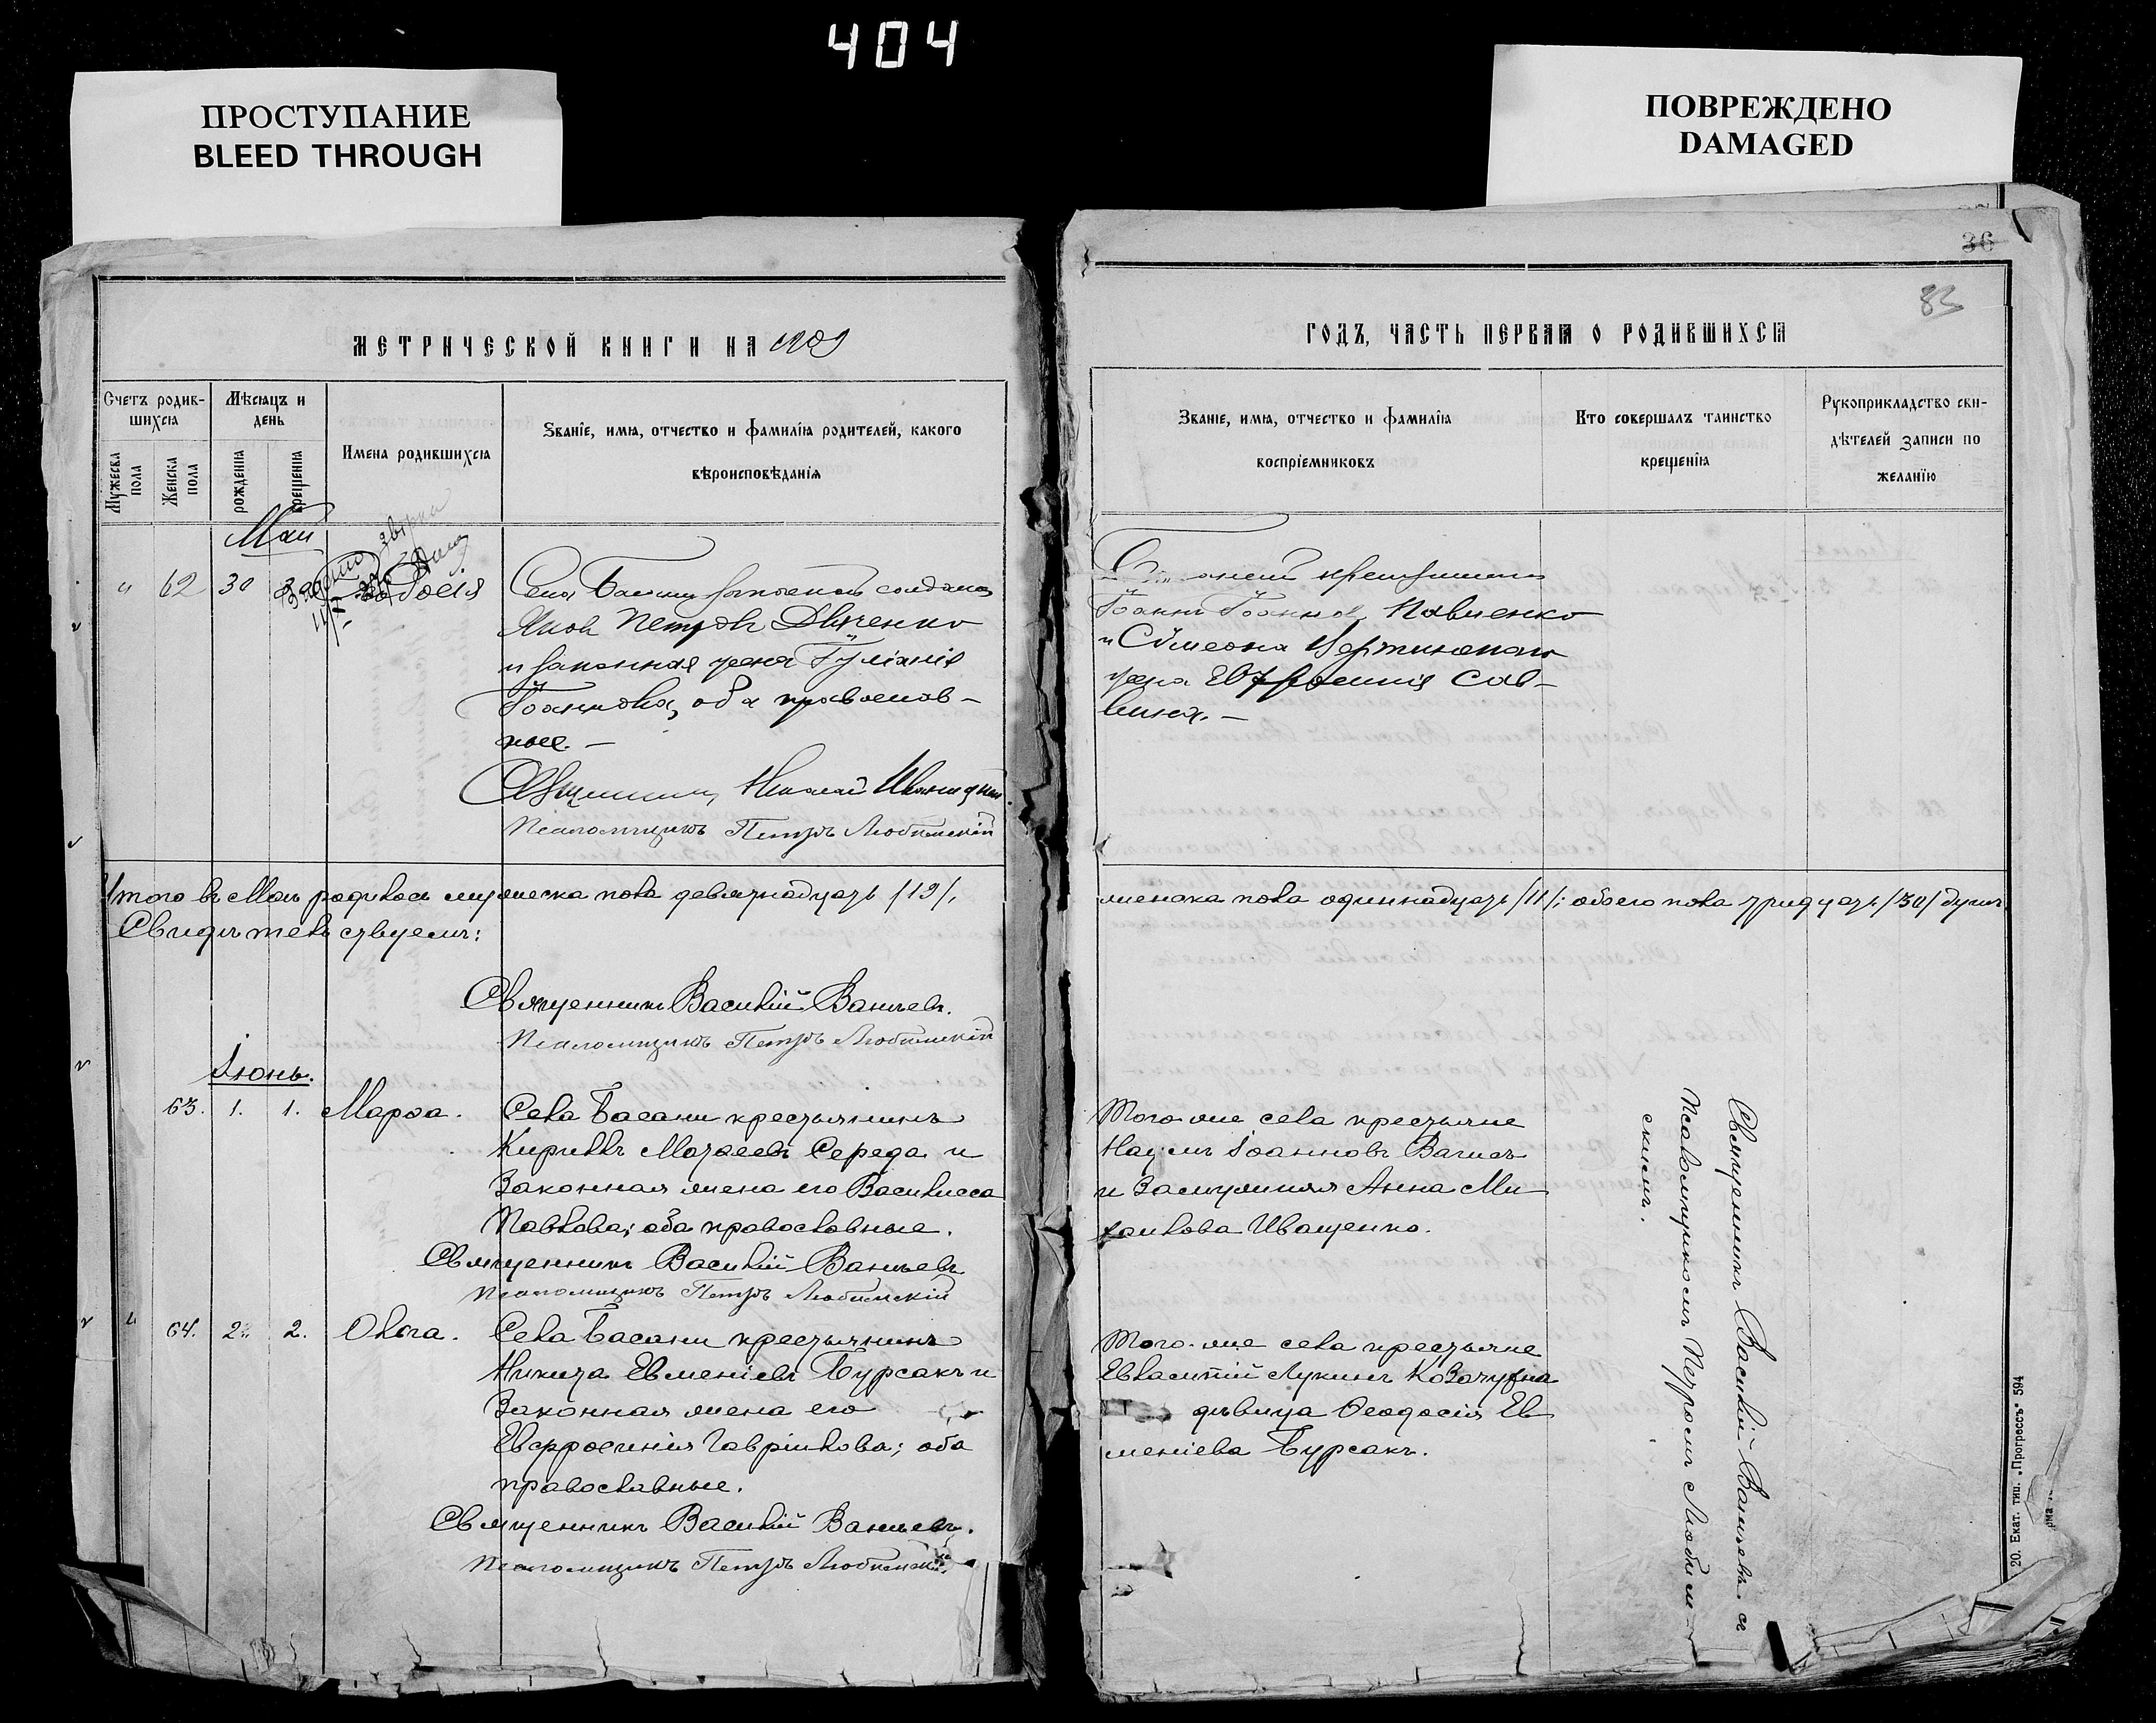 404
ПРОСТУПАНИЕ
BLEED THROUGH
ПОВРЕЖДЕНО
DAMAGED
36
83
МЕТРИЧЕСКОЙ КНИГИ НА 1909
Счетъ родив-
шихся
Мѣсяцъ и
день
Мужеска
пола
Женска
пола
рожденія
крещенія
Имена родившихся
Званіе, имя, отчество и фамилія родителей, какого
вѣроисповѣданія
Май
" 62 30
Села Басани солдатъ
Яковъ Петровъ
и законная жена Іуліанія
Іоаннова, оба православ-
ные. –
Священникъ Николай
Псаломщикъ Петръ Любимскій
Итого въ Маѣ родилось мужеска пола девятнадцать /19/,
Свидѣтельствуемъ:
Священникъ Василій Ваньевъ.
Псаломщикъ Петръ Любимскій
Іюнь.
63. 1. 1. Марѳа. Села Басани крестьянинъ
Кириллъ Матѳеевъ Середа и
Законная жена его Василисса
Павлова; оба православные.
Священникъ Василій Ваньевъ
Псаломщикъ Петръ Любимскій
" 64. 2. 2. Ольга. Села Басани крестьянинъ
Никита Евменіевъ Бурсакъ и
Законная жена его
Евфросинія Гавріилова; оба
православные.
Священникъ Василій Ваньевъ.
Псаломщикъ Петръ Любимскій.
ГОДЪ, ЧАСТЬ ПЕРВАЯ О РОДИВШИХСЯ
Званіе, имя, отчество и фамилія
воспріемниковъ
Кто совершалъ таинство
крещенія
Рукоприкладство сви-
дѣтелей записи по
желанію
Іоаннъ Іоанновъ Павленко
и Сѵмеона
жена Евфросинія Сав-
вина. –
женска пола одиннадцать /11/; обоего пола тридцать /30/ душъ
Того-же села крестьяне
Наумъ Іоанновъ
и Замужняя Анна Ми-
хаилова Иващенко.
Того-же села крестьяне
Евлампій Лукинъ
дѣвица Ѳеодосія Ев-
меніева Бурсакъ.
Священникъ Василій Ваньевъ съ
Псаломщикомъ Петромъ Любим-
скимъ.
20. Екат. тип. „Прогрессъ“ 594